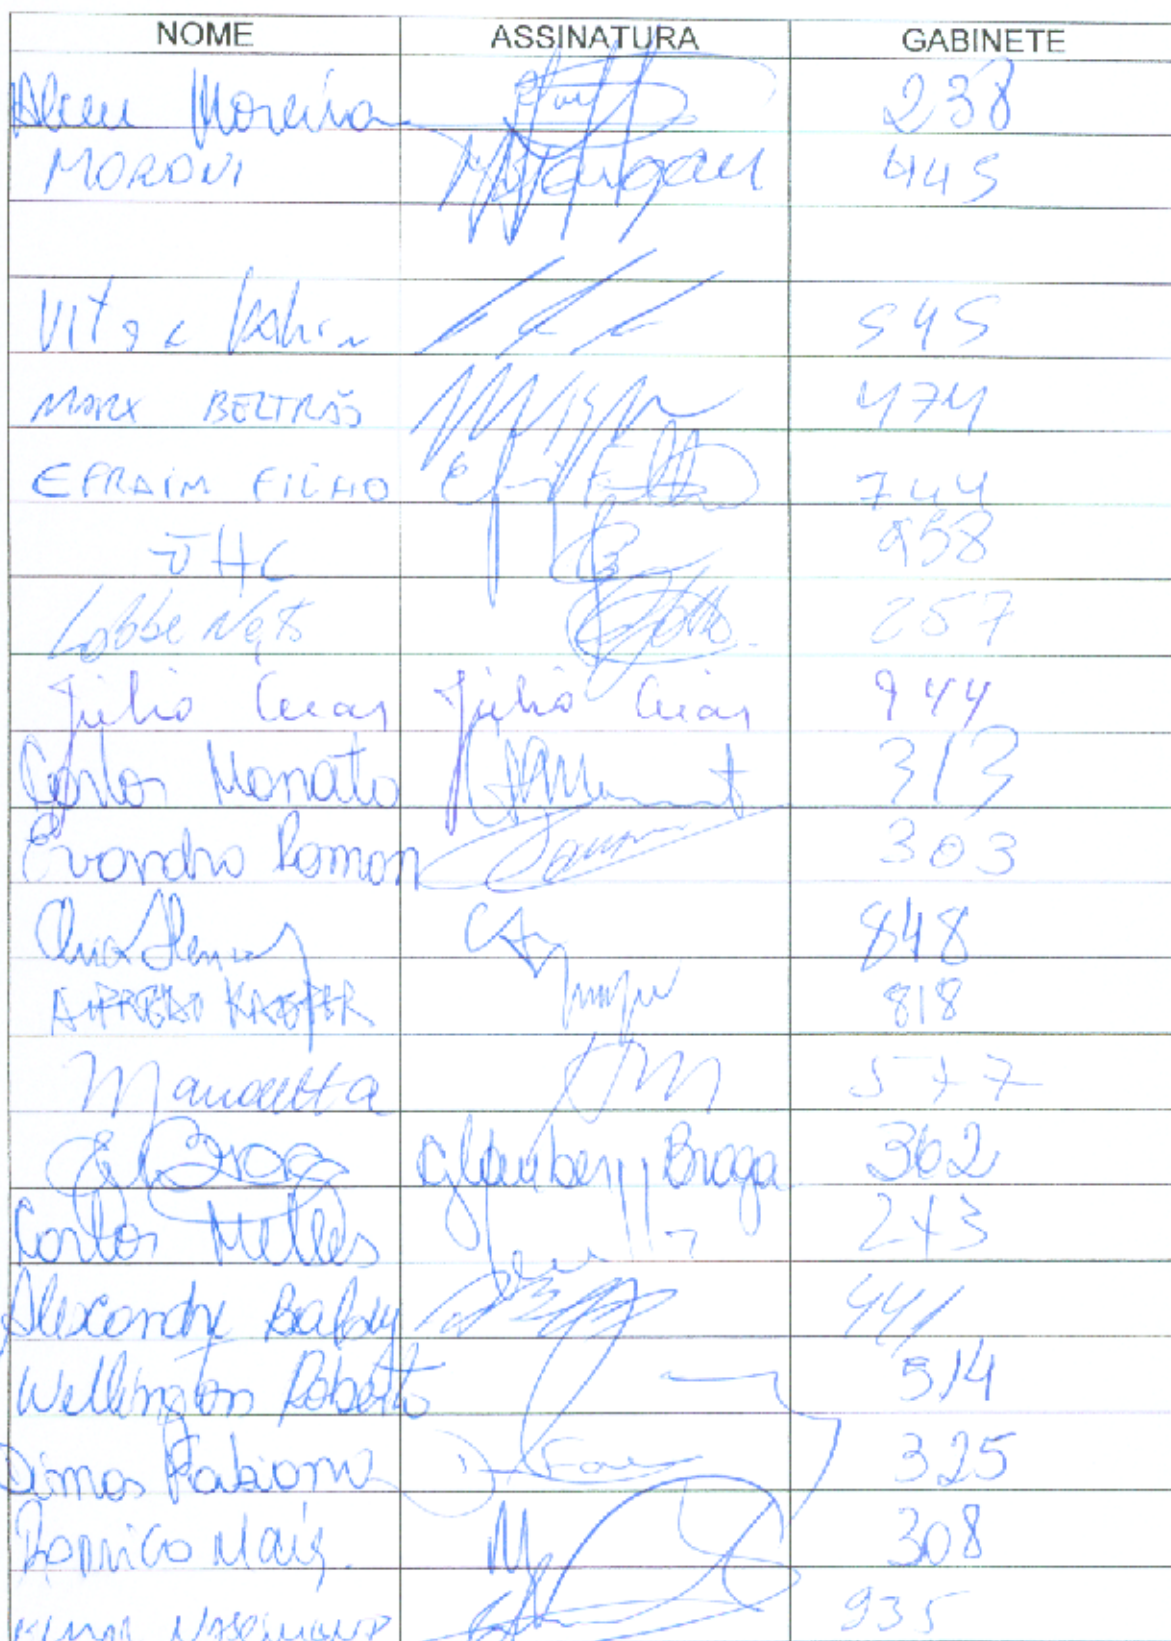 NOME ASSINATURA GABINETE
Alceu Moreira 238
MORONI 445
Vitor Valim 545
MARX BELTRÃO 474
EFRAIM FILHO Efraim Filho 744
JHC 958
Lobbe Neto 257
Júlio Cesar Júlio Cesar 944
Carlos Manato 313
Evandro Roman 303
848
ALFREDO KAEFER 818
Mandetta 577
Glauber Braga 362
Carlos Melles 243
Alexandre Baldy 441
Wellington Roberto 514
Dimas Fabiano 325
Rodrigo Maia 308
NASCIMENTO 935